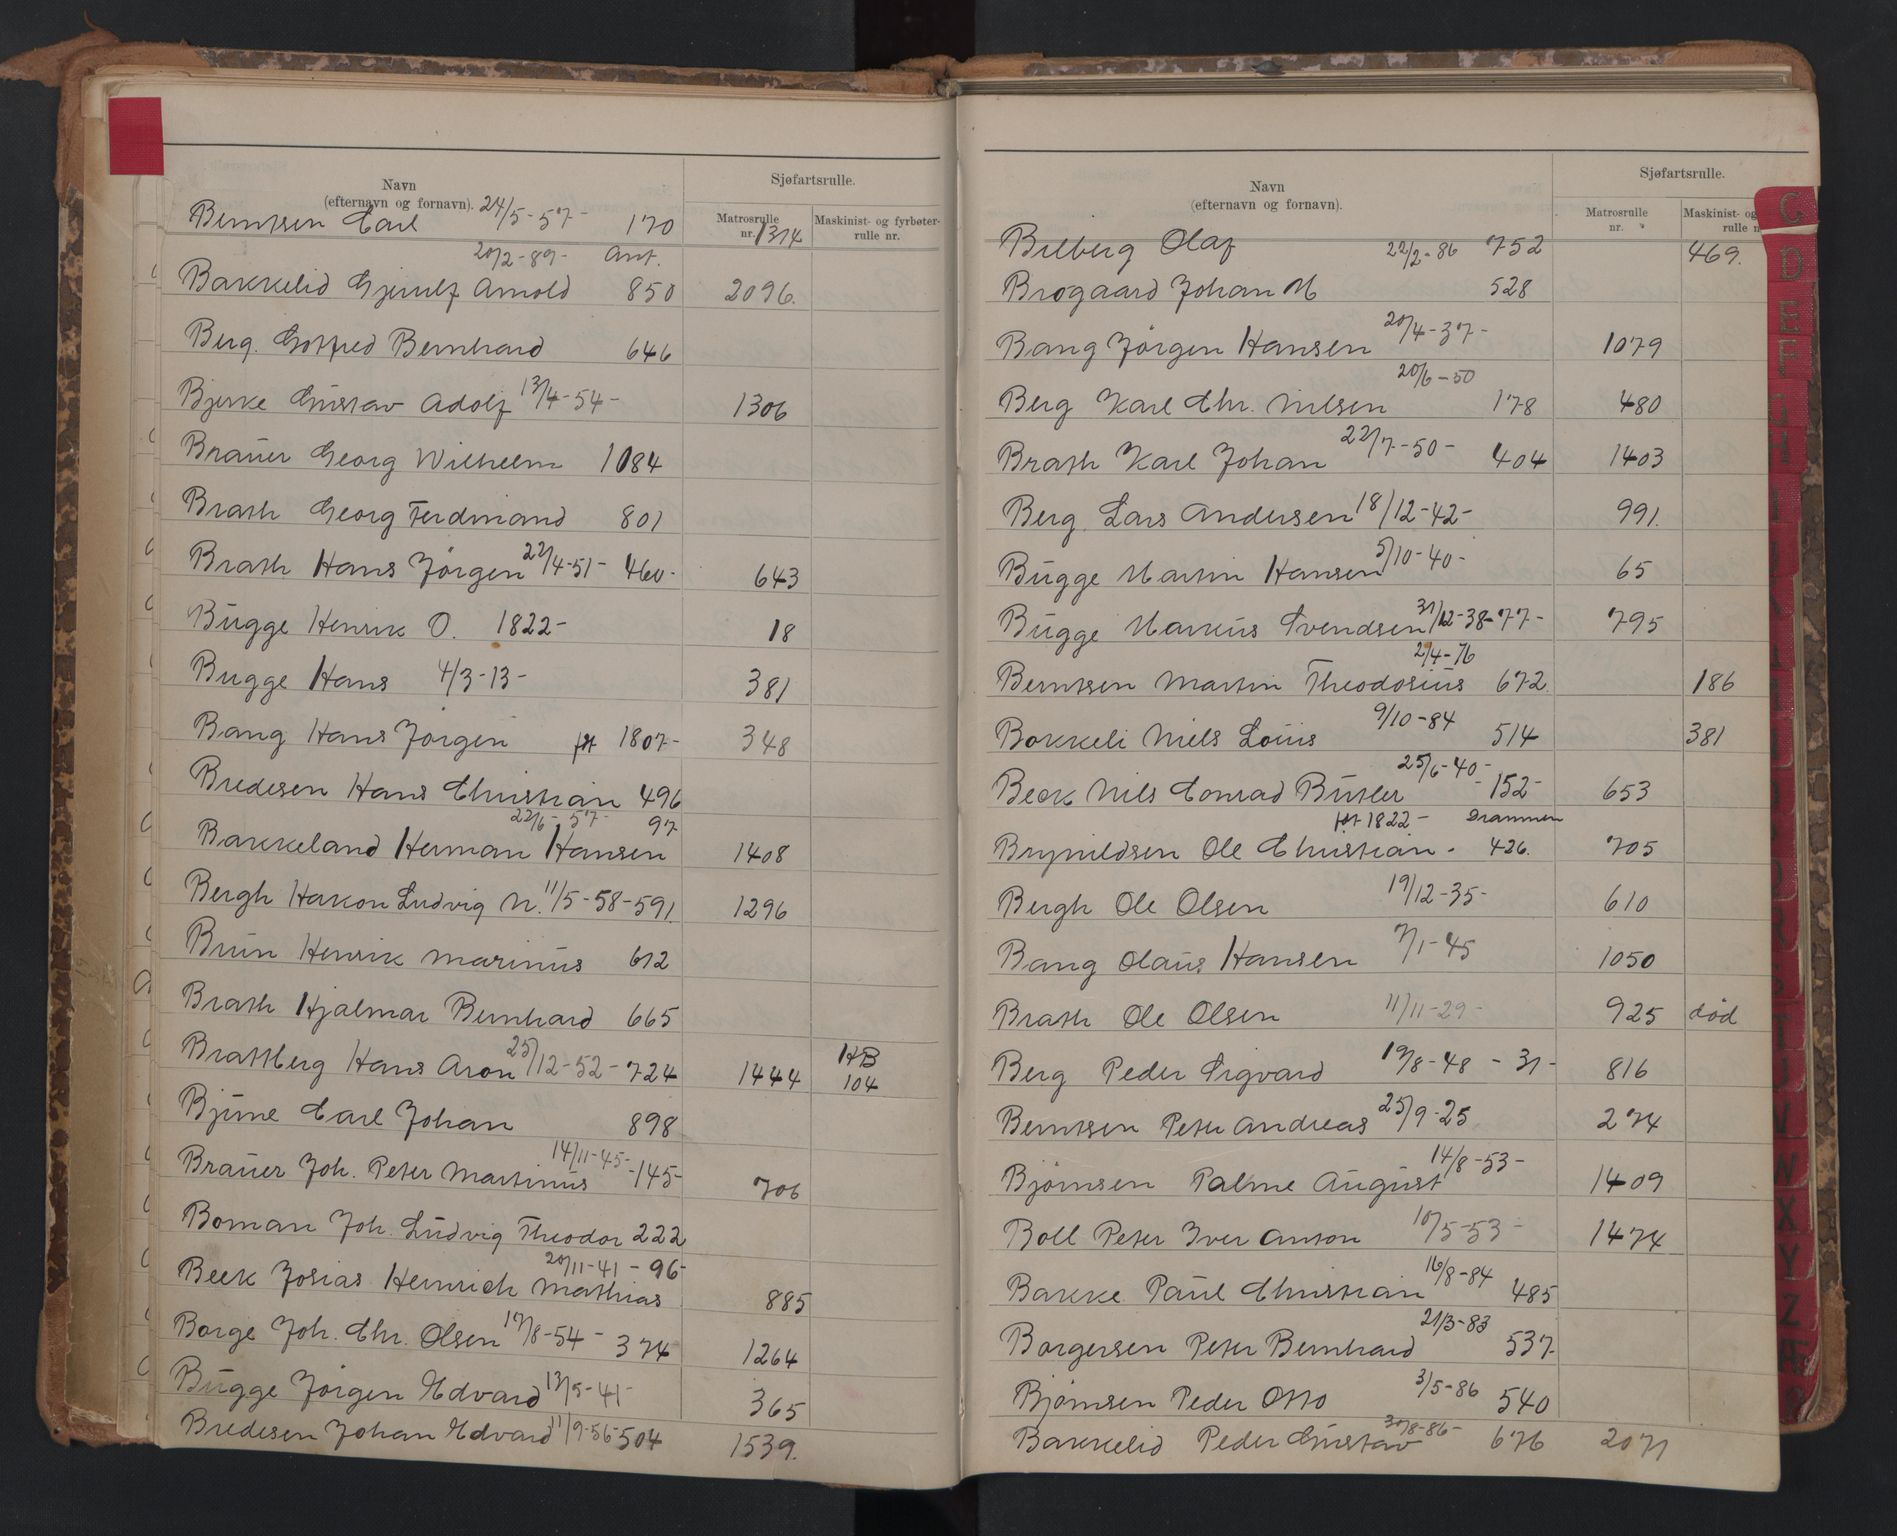 Navn
(efternavn og fornavn).
Sjøfartsrulle.
Matrosrulle
nr.
Maskinist- og fyrbøter-
rulle nr.
Berntsen Carl 24/5-57- 170 1314
20/2-89- Ant.
Bakkelid Gjerulf Arnold 850 2096.
Berg. Gotfred Bernhard 646
Bjerke Gustav Adolf 13/4-54- 1306
Brauer Georg Wilhelm 1084
Brath Georg Ferdinand 801
Brath Hans Jörgen 22/4-51- 460- 643
Bugge Henrik O. 1822- 18
Bugge Hans 4/3-13- 381
Bang Hans Jörgen føt 1807- 348
Bredesen Hans Christian 496
22/6-57- 97
Bakkeland Herman Hansen 1408
Bergh Hakon Ludvig N. 11/5-58-591. 1296
Brun Henrik Marinus 612
Brath Hjalmar Bernhard 665
Brattberg Hans Aron 25/12-52-724 1444 HB
104
Bjune Carl Johan 898
14/11-45-
Brauer Joh. Peter Martinus -145- 706
Boman Joh. Ludvig Theodor 222
20/11-41-96-
Beck Josias Heinrich Mathias 885
Borge Joh. Chr. Olsen 17/8-54- 374 1264
Bugge Jörgen Edvard 13/5-41- 365
Bredesen Johan Edvard 11/9-56-504 1539.
Navn
(efternavn og fornavn).
Sjøfartsrulle.
Matrosrulle
nr.
Maskinist- og
rulle n
Bilberg Olaf 22/2-86 752 469.
Brogaard Johan M 528
Bang Jörgen Hansen 20/4-37- 1079
20/6-50
Berg Karl Chr. Nilsen 178 480
Brath Karl Johan 22/7-50- 404 1403
Berg. Lars Andersen 18/12-42- 991.
Bugge Martin Hansen 5/10-40- 65
Bugge Markus Svendsen 31/12-38-77- 795
2/4-76
Berntsen Martin Theodosius 672. 186
Bokkeli Niels Louis 9/10-84 514 381
25/6-40-
Beck Nils Conrad Butler -152- 653
føt 1822- Drammen
Brynildsen Ole Christian. 426. 705
Bergh Ole Olsen 19/12-35- 610
Bang Olaus Hansen 7/1-45 1050
Brath Ole Olsen 11/11-29- 925 død
Berg Peder Sigvard 19/8-48 -31- 816
Berntsen Peter Andreas 25/9-25. 274
Bjørnsen Palme August 14/8-53- 1409
Boll Peter Iver Anton 10/5-53- 1474
Bakke Paul Christian 16/8-84 485
Borgersen Peter Bernhard 21/3-83 537.
Bjørnsen Peder Otto 3/5-86 540
Bakkelid Peder Gustav 30/8-86- 676 2071
C
D
E
F
V
W
X
Y
Z
Æ